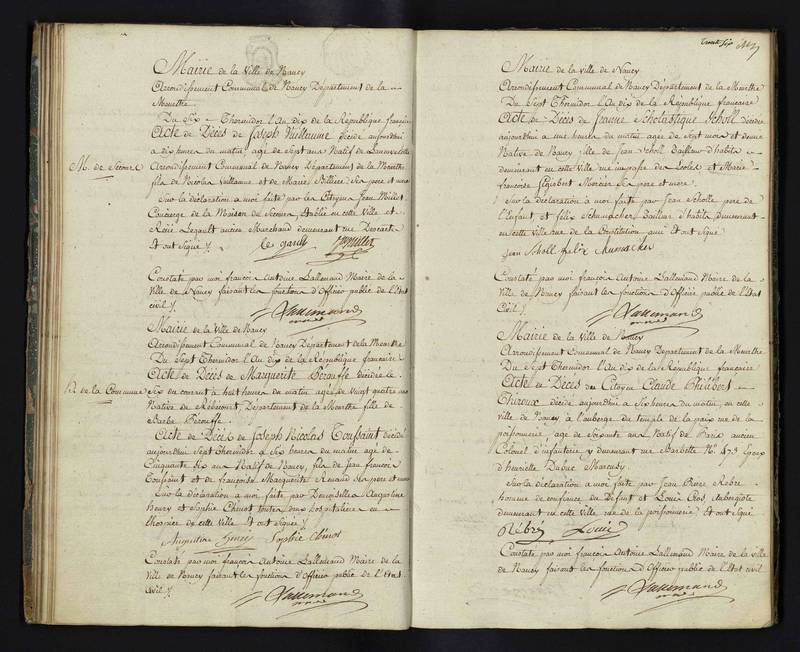 Mairie de la Ville de Nancy
Arrondissement Communal de Nancy Département de la
Meurthe
Du Six Thermidor l'An dix de la République françoise
Acte de Décès de Joseph Vuillaume décédé aujourdhui
a dix heures du matin agé de Sept ans Natif de
M. de Secours Arrondissement Communal de Nancy Département de la Meurthe
fils de Nicolas Vuillaume et de Marie ses pere et mere
Sur la déclaration a moi faite par les Citoyens Jean Millot
Concierge de la Maison de Secours établie en cette Ville et
René Legault ancien Marchand demeurant rue
Et ont Signé ./.
le gault Jn miller
Constaté par moi françois Antoine Lallemand Maire de la
Ville de Nancy faisant les fonctions d'Officier public de l'état
civil ./.
Lallemand
maire
Mairie de la Ville de Nancy
Arrondissement Communal de Nancy Département de la Meurthe
Du Sept Thermidor l'An dix de la République françoise
Acte de Décès de Marguerite Bérauffe décédée le
H. de la Commune Six du courant à huit heures du matin agée de vingt quatre ans
Native de Département de la Meurthe fille de
Barbe Bérauffe.
Acte de Décès de Joseph Nicolas Toussaint décédé
aujourdhui Sept Thermidor à Six heures du matin agé de
Cinquante Six ans Natif de Nancy, fils de Jean françois
Toussaint et de françoise Marguerite Renaud Ses pere et mere
Sur la déclaration a moi faite par Demoiselles Augustine
henry et Sophie Chinot toutes deux hospitalieres en
l'hospice de cette Ville Et ont Signé ./.
Augustine henry Sophie Chinot
Constaté par moi françois Antoine Lallemand Maire de la
Ville de Nancy faisant les fonctions d'Officier public de l'état
civil ./.
Lallemand
maire
trente Six
Mairie de la Ville de Nancy
Arrondissement Communal de Nancy Département de la Meurthe
Du Sept Thermidor l'An dix de la République françoise
Acte de Décès de Jeanne Scholastique Scholl décédée
aujourdhui a une heure du matin agée de Sept mois et demie
Native de Nancy fille de Jean Scholl Tailleur d'habits
demeurant en cette Ville rue des Ecoles et Marie
françoise Mercier Ses pere et mere.
Sur la déclaration a moi faite par Jean Scholle pere de
l'Enfant et félix Schumacher Tailleur d'habits demeurant
en cette Ville rue de la Constitution qui Et ont Signé
Jean Scholl felix
Constaté par moi françois Antoine Lallemand Maire de la
Ville de Nancy faisant les fonctions d'Officier public de l'état
Civil ./.
Lallemand
maire
Mairie de la Ville de Nancy
Arrondissement Communal de Nancy Département de la Meurthe
Du Sept Thermidor l'An dix de la République françoise
Acte de Décès du Citoyen Claude Philibert
Thiroux décédé aujourdhui a Six heures du matin, en cette
ville de Nancy à l'auberge du temple de la paix rue de la
poissonnerie, agé de Soixante ans Natif de Paris ancien
Colonel d'infanterie y demeurant rue Barbette No. 473 Epoux
d'henriette Duduc Marcusy.
Sur la déclaration a moi faite par Jean Pierre Rebre
homme de confiance du Défunt et Louis Ros, aubergiste
demeurant en cette Ville rue de la poissonnerie Et ont Signé
Rébré Louis
Constaté par moi françois Antoine Lallemand Maire de la Ville
de Nancy faisant les fonctions d'Officier public de l'état civil
Lallemand
maire